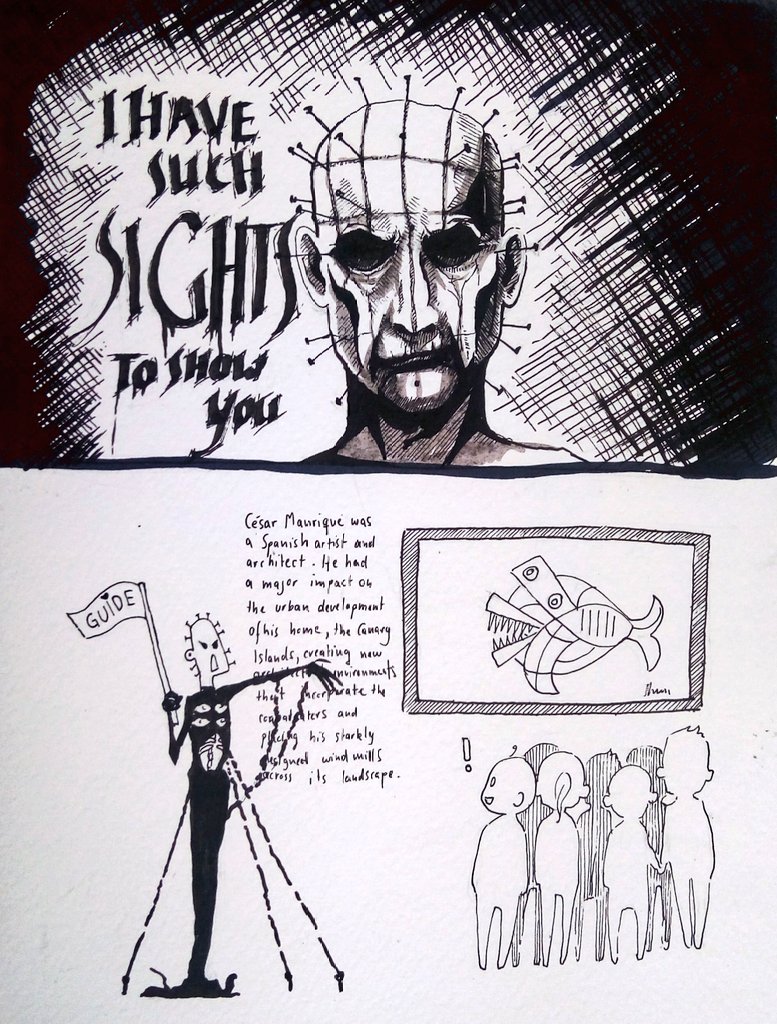 I HAVE
SUCH
SIGHTS
TO SHOW
YOU
César Manrique was
a Spanish artist and
architect. He had
a major impact on
the urban development
of his home, the Canary
Islands, creating new
environments
that incorporate the
and
placing his starkly
designed windmills
across its landscape.
GUIDE
!